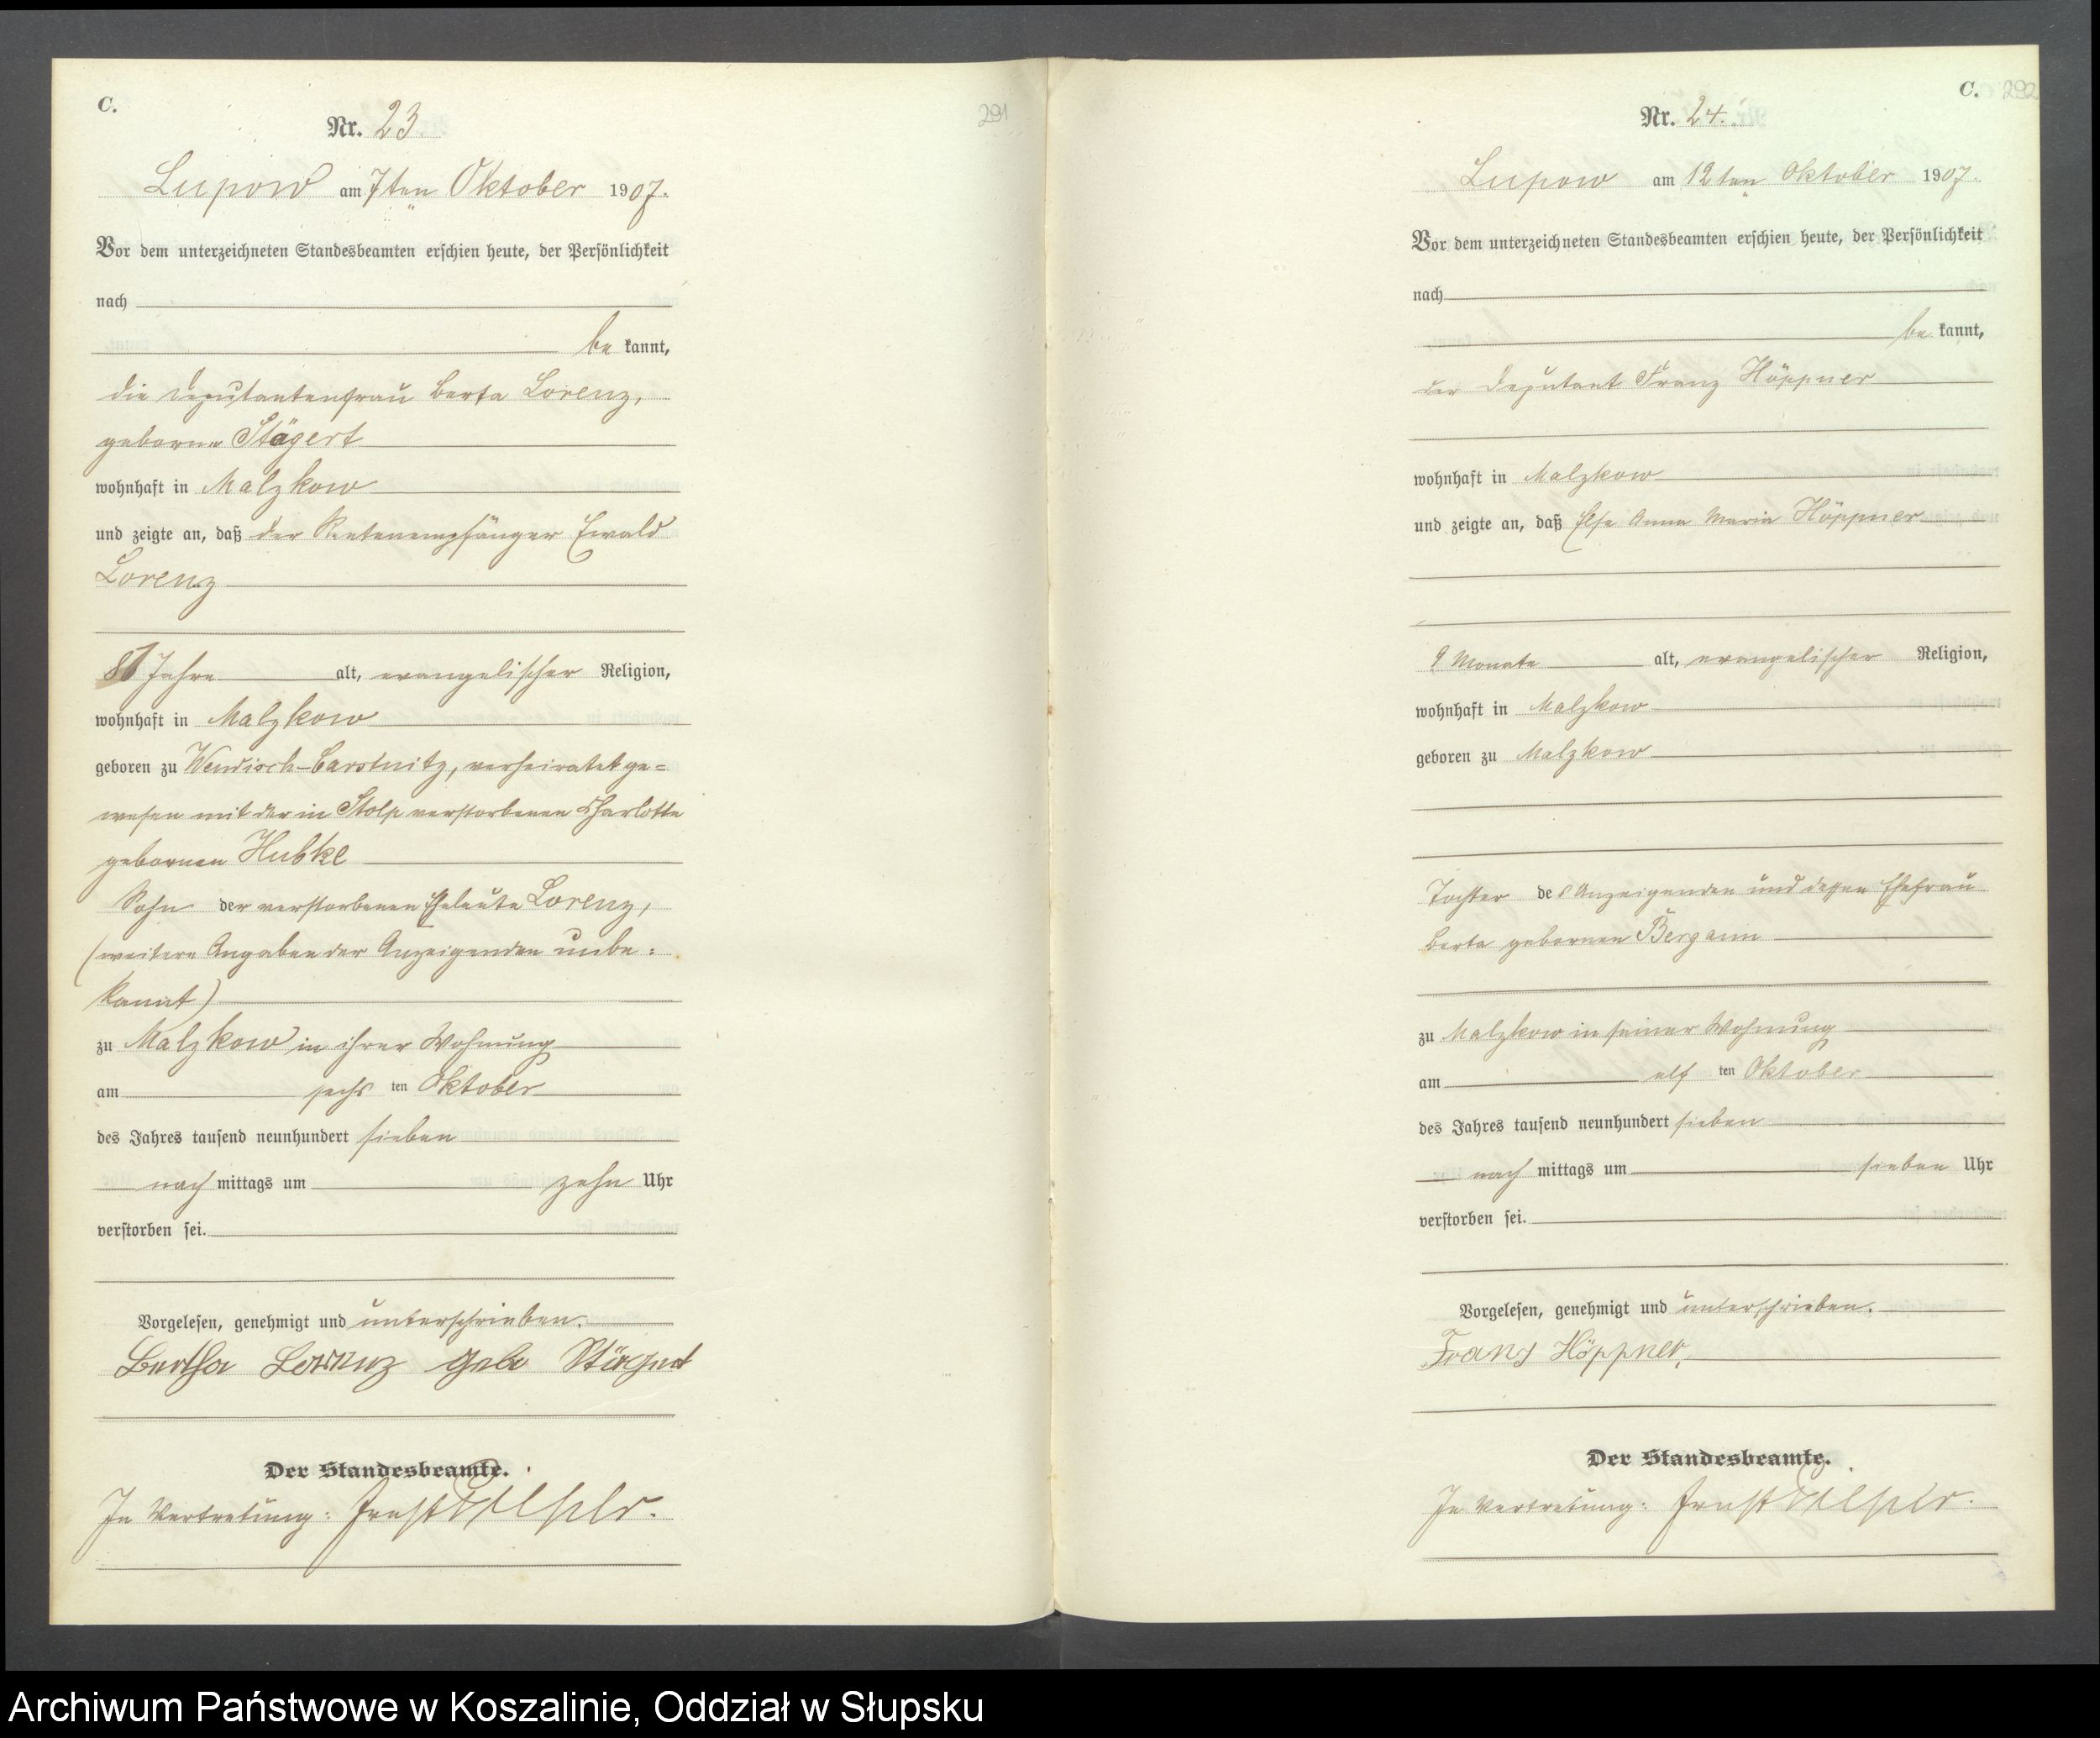 C.
291
Nr. 23
Lupow am 7ten Oktober 1907.
Vor dem unterzeichneten Standesbeamten erschien heute, der Persönlichkeit
nach
be kannt,
die Deputantenfrau Berta Lorenz,
geborne Stägert
wohnhaft in Malzkow
und zeigte an, daß der Rentenempfänger Ewald
Lorenz
Jahre alt, evangelischer Religion,
wohnhaft in Malzkow
geboren zu Wendisch-Carstnitz, verheiratet ge=
wesen mit der in Stolp verstorbenen Charlotte
gebornen Hubke
Sohn der verstorbenen Eheleute Lorenz,
(weitere Angaben der Anzeigenden unbe:
kannt)
zu Malzkow in ihrer Wohnung
am sechs ten Oktober
des Jahres tausend neunhundert sieben
nach mittags um zehn Uhr
verstorben sei.
Vorgelesen, genehmigt und unterschrieben.
Bertha Lorenz geb Stägert
Der Standesbeamte.
In Vertretung: Ernst
C. 292
Nr. 24.
Lupow am 12ten Oktober 1907.
Vor dem unterzeichneten Standesbeamten erschien heute, der Persönlichkeit
nach
be kannt,
der Deputant Franz Höppner
wohnhaft in Malzkow
und zeigte an, daß Else Anna Maria Höppner
9 Monate alt, evangelischer Religion,
wohnhaft in Malzkow
geboren zu Malzkow
Tochter des Anzeigenden und dessen Ehefrau
Berta gebornen Bergann
zu Malzkow in seiner Wohnung
am elf ten Oktober
des Jahres tausend neunhundert sieben
nach mittags um sieben Uhr
verstorben sei.
Vorgelesen, genehmigt und unterschrieben.
Franz Höppner,
Der Standesbeamte.
In Vertretung: Ernst
Archiwum Państwowe w Koszalinie, Oddział w Słupsku